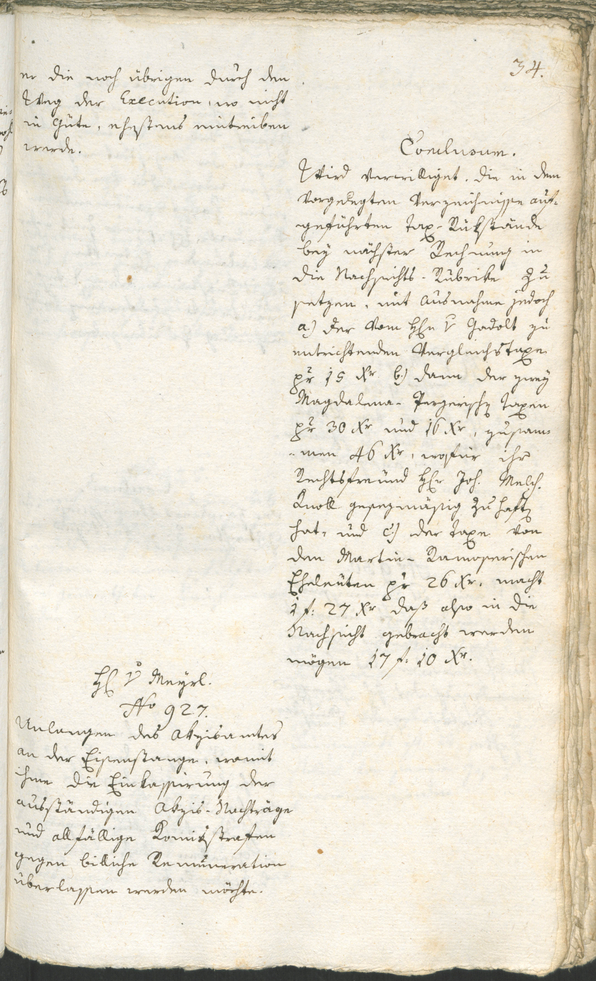 34.
er die noch übrigen durch den
Weg der Execution, wo nicht
in Güte, ehestens eintreiben
werde.
Conclusum.
Wird verwilliget, die in dem
vorgelegten Verzeichnisse auf-
geführten Tax-Rükstände
bey nächster Rechnung in
die Nachsichts-Rubrike zu
setzen, mit Ausnahme jedoch
a) der vom Hhn v Gadolt zu
entrichtenden Vergleichstaxe
pr 15 Xr b) dann der zwey
Magdalena- Taxen
pr 30 Xr und 16 Xr, zusam-
-men 46 Xr, wofür ihr
Rechtsfreund Hhr Joh. Melch.
Knoll gesezmäßig zu haften
hat, und c) der Taxe von
den Martin-Ramoserischen
Eheleuten pr 26 Xr. macht
1 f: 27 Xr daß also in die
Nachsicht gebracht werden
mögen 17 f: 10 Xr.
H v Meyrl.
No 927.
Anlangen des Akzisamtes
an der Eisenstange, womit
ihme die Einkassirung der
ausständigen Akzis-Nachträge
und allfällige Komißstrafen
gegen billiche Remuneration
überlassen werden möchte.